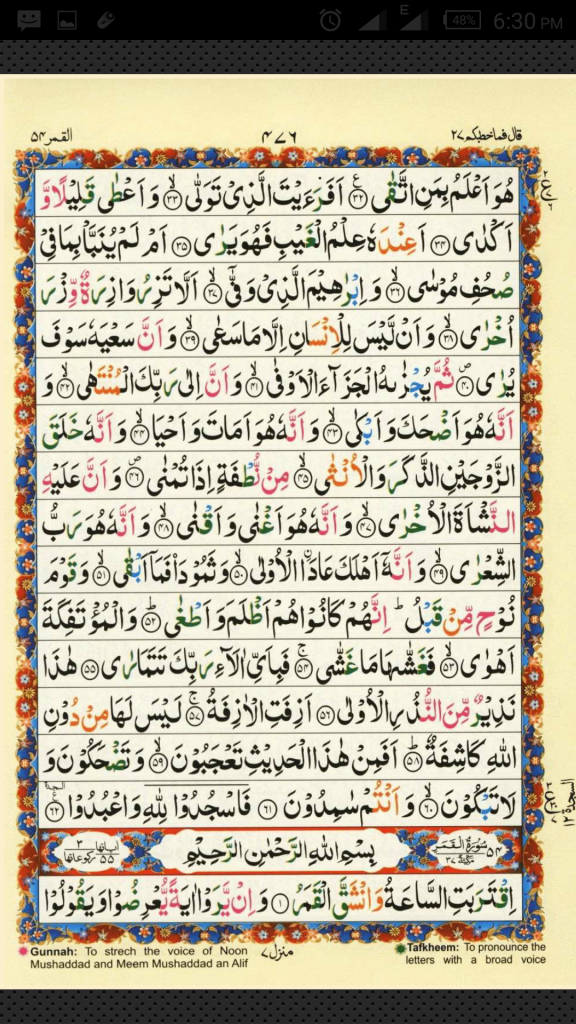 E 48% 6:30 PM
قال فماخطبكم ٢٧ ٤٧٦ القمر ٥٤
هُوَ اَعْلَمُ بِمَنِ اتَّقٰى ﴿٣٢﴾ اَفَرَءَيْتَ الَّذِىْ تَوَلّٰى ﴿٣٣﴾ وَ اَعْطٰى قَلِيْلًا وَّ
اَكْدٰى ﴿٣٤﴾ اَعِنْدَهٗ عِلْمُ الْغَيْبِ فَهُوَ يَرٰى ﴿٣٥﴾ اَمْ لَمْ يُنَبَّاْ بِمَا فِىْ
صُحُفِ مُوْسٰى ﴿٣٦﴾ وَ اِبْرٰهِيْمَ الَّذِىْ وَفّٰى ﴿٣٧﴾ اَلَّا تَزِرُ وَازِرَةٌ وِّزْرَ
اُخْرٰى ﴿٣٨﴾ وَ اَنْ لَّيْسَ لِلْاِنْسَانِ اِلَّا مَا سَعٰى ﴿٣٩﴾ وَ اَنَّ سَعْيَهٗ سَوْفَ
يُرٰى ﴿٤٠﴾ ثُمَّ يُجْزٰىهُ الْجَزَآءَ الْاَوْفٰى ﴿٤١﴾ وَ اَنَّ اِلٰى رَبِّكَ الْمُنْتَهٰى ﴿٤٢﴾ وَ
اَنَّهٗ هُوَ اَضْحَكَ وَ اَبْكٰى ﴿٤٣﴾ وَ اَنَّهٗ هُوَ اَمَاتَ وَ اَحْيَا ﴿٤٤﴾ وَ اَنَّهٗ خَلَقَ
الزَّوْجَيْنِ الذَّكَرَ وَ الْاُنْثٰى ﴿٤٥﴾ مِنْ نُّطْفَةٍ اِذَا تُمْنٰى ﴿٤٦﴾ وَ اَنَّ عَلَيْهِ
النَّشْاَةَ الْاُخْرٰى ﴿٤٧﴾ وَ اَنَّهٗ هُوَ اَغْنٰى وَ اَقْنٰى ﴿٤٨﴾ وَ اَنَّهٗ هُوَ رَبُّ
الشِّعْرٰى ﴿٤٩﴾ وَ اَنَّهٗٓ اَهْلَكَ عَادَاۨ الْاُوْلٰى ﴿٥٠﴾ وَ ثَمُوْدَاۡ فَمَاۤ اَبْقٰى ﴿٥١﴾ وَ قَوْمَ
نُوْحٍ مِّنْ قَبْلُ ؕ اِنَّهُمْ كَانُوْا هُمْ اَظْلَمَ وَ اَطْغٰى ﴿٥٢﴾ وَ الْمُؤْتَفِكَةَ
اَهْوٰى ﴿٥٣﴾ فَغَشّٰىهَا مَا غَشّٰى ﴿٥٤﴾ فَبِاَىِّ اٰلَآءِ رَبِّكَ تَتَمَارٰى ﴿٥٥﴾ هٰذَا
نَذِيْرٌ مِّنَ النُّذُرِ الْاُوْلٰى ﴿٥٦﴾ اَزِفَتِ الْاٰزِفَةُ ﴿٥٧﴾ لَيْسَ لَهَا مِنْ دُوْنِ
اللّٰهِ كَاشِفَةٌ ﴿٥٨﴾ اَفَمِنْ هٰذَا الْحَدِيْثِ تَعْجَبُوْنَ ﴿٥٩﴾ وَ تَضْحَكُوْنَ وَ
لَا تَبْكُوْنَ ﴿٦٠﴾ وَ اَنْتُمْ سٰمِدُوْنَ ﴿٦١﴾ فَاسْجُدُوْا لِلّٰهِ وَ اعْبُدُوْا ﴿٦٢﴾
السجدة ١٢
٥٤ سُوْرَةُ الْقَمَرِ مَكِّيَّةٌ ٣٧ بِسْمِ اللّٰهِ الرَّحْمٰنِ الرَّحِيْمِ اٰيَاتُهَا ٥٥ رُكُوْعَاتُهَا ٣
اِقْتَرَبَتِ السَّاعَةُ وَ انْشَقَّ الْقَمَرُ ﴿١﴾ وَ اِنْ يَّرَوْا اٰيَةً يُّعْرِضُوْا وَ يَقُوْلُوْا
منزل ٧
Gunnah: To strech the voice of Noon
Mushaddad and Meem Mushaddad an Alif
Tafkheem: To pronounce the
letters with a broad voice